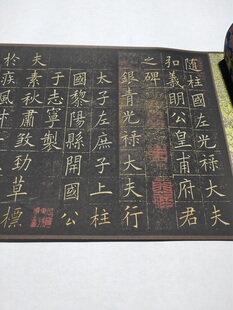 随柱國左光禄大夫
和義明公皇甫府君
之碑
銀青光禄大夫行
太子左庶子上柱
國黎陽縣開國公
于志寧製
夫素秋肅煞勁草標
於疾風